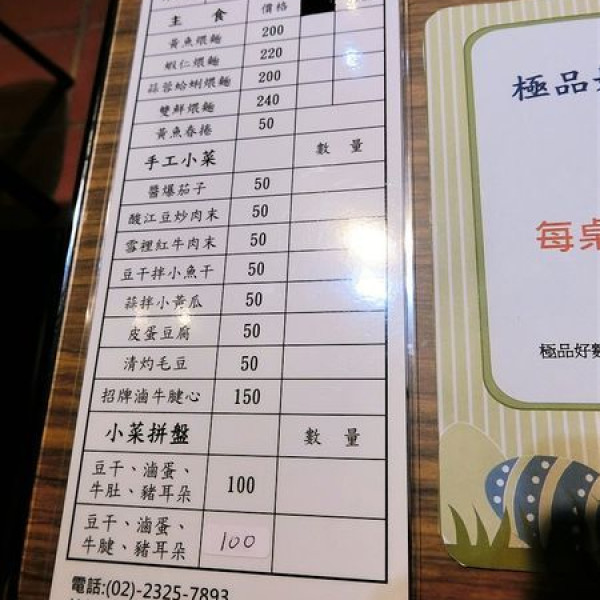 主 食 價格
黃魚煨麵 200
蝦仁煨麵 220
蒜蓉蛤蜊煨麵 200
雙鮮煨麵 240
黃魚春捲 50
手工小菜 數 量
醬爆茄子 50
酸江豆炒肉末 50
雪裡紅牛肉末 50
豆干拌小魚干 50
蒜拌小黃瓜 50
皮蛋豆腐 50
清灼毛豆 50
招牌滷牛腱心 150
小菜拼盤 數 量
豆干、滷蛋、
牛肚、豬耳朵 100
豆干、滷蛋、
牛腱、豬耳朵 100
電話:(02)-2325-7893
極品
每桌
極品好